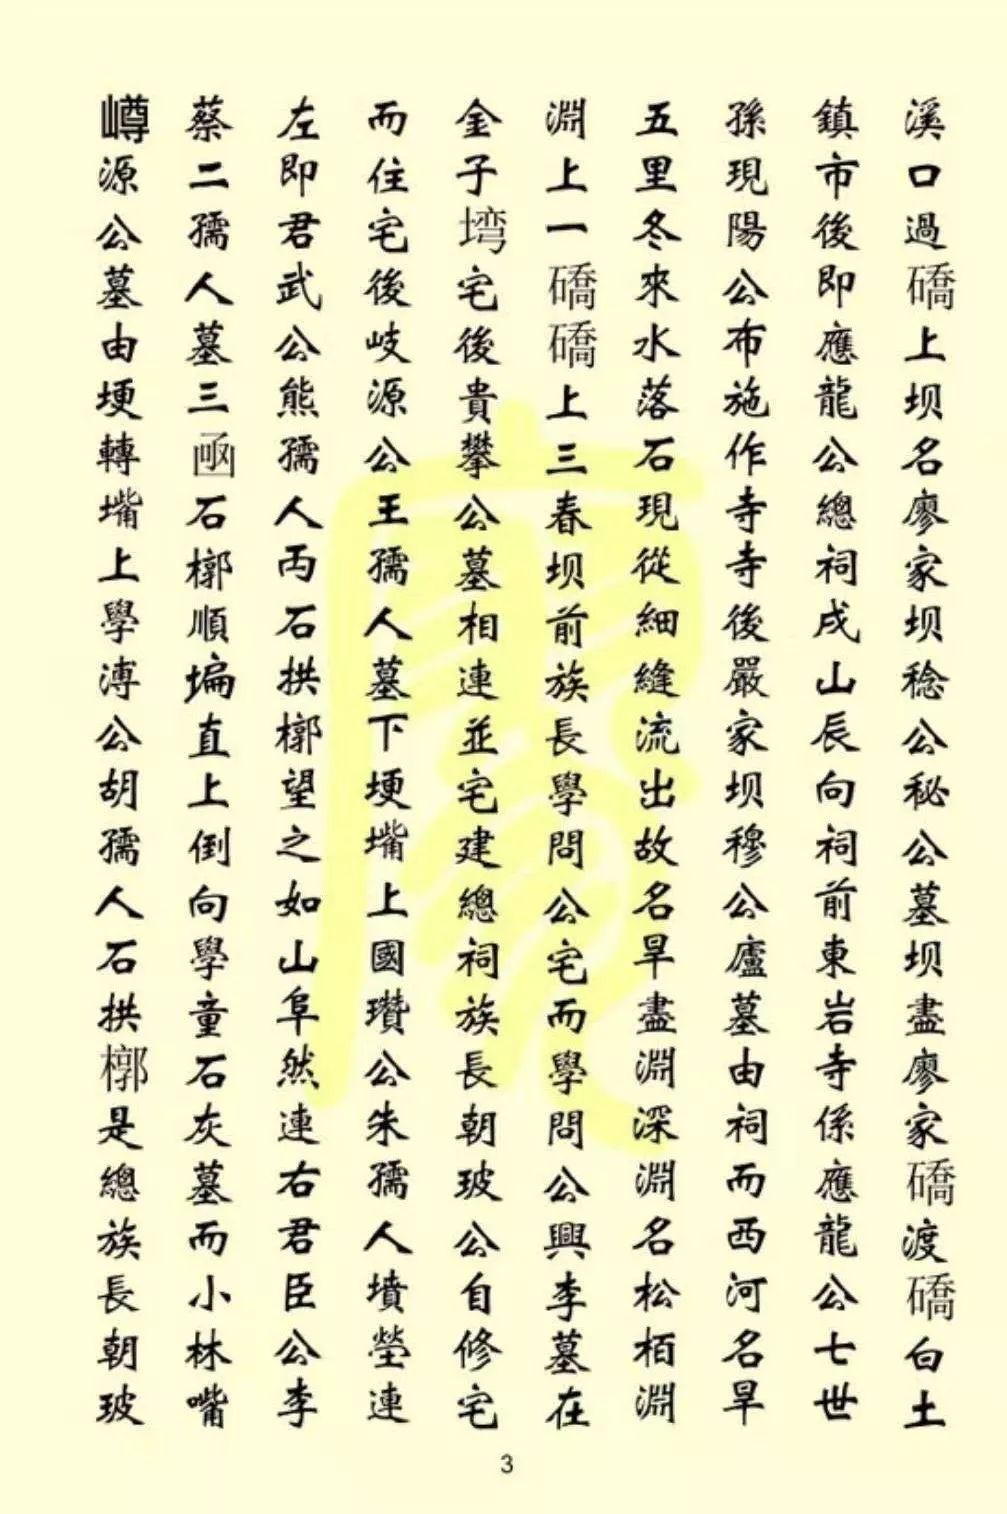 溪口過礄上坝名廖家坝稔公秘公墓坝盡廖家礄渡礄白土
鎮市後即應龍公總祠戌山辰向祠前東岩寺係應龍公七世
孫現陽公布施作寺寺後嚴家坝穆公廬墓由祠而西河名旱
五里冬來水落石現從細縫流出故名旱盡淵深淵名松栢淵
淵上一礄礄上三春坝前族長學問公宅而學問公興李墓在
金子塆宅後貴攀公墓相連並宅建總祠族長朝玻公自修宅
而住宅後岐源公王孺人墓下埂墕上國瓚公朱孺人墳塋連
左即君武公熊孺人丙石拱槨望之如山阜然連右君臣公李
蔡二孺人墓三凾石槨順塥直上倒向學童石灰墓而小林嘴
嶟源公墓由埂轉墕上學溥公胡孺人石拱槨是總族長朝玻
3
廖